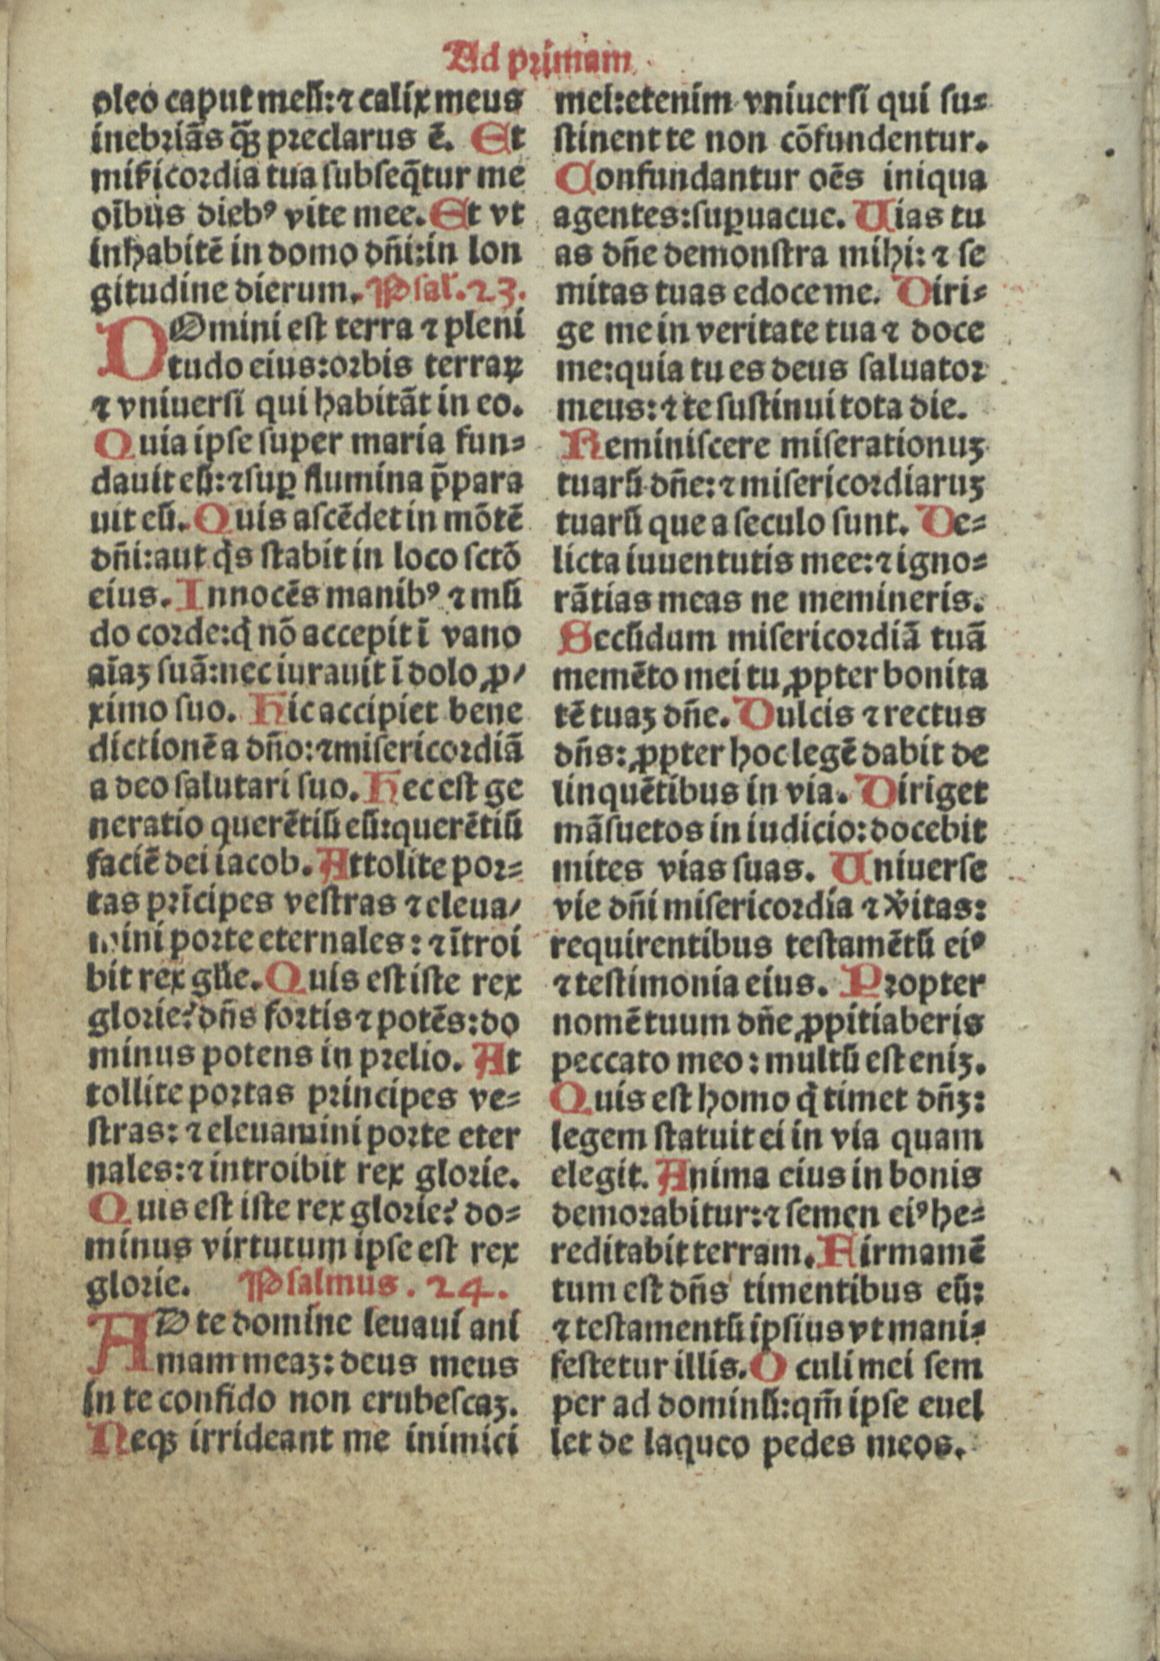 Ad primam
oleo caput meū: ⁊ calix meus
inebriãs q̃ꝫ preclarus ē. Et
mĩcordia tua subseq̃tur me
oĩbus diebꝰ vite mee. Et vt
inhabitē in domo dñi: in lon
gitudine dierum. Psal̃. 23.
DOmini est terra ⁊ pleni
tudo eius: orbis terraꝝ
⁊ vniuersi qui habitãt in eo.
Quia ipse super maria fun⸗
dauit eū: ⁊ suꝑ flumina p̃para
uit eū. Quis ascēdet in mōtē
dñi: aut q̃s stabit in loco sctō
eius. Innocēs manibꝰ ⁊ mū
do corde: q̃ nō accepit ĩ vano
aĩaꝫ suã: nec iurauit ĩ dolo ꝓ/
ximo suo. Hic accipiet bene
dictionē a dño: ⁊ misericordiã
a deo salutari suo. Hec est ge
neratio querētiū eū: querētiū
faciē dei iacob. Attolite por⸗
tas prĩcipes vestras ⁊ eleua/
mini porte eternales: ⁊ ĩtroi
bit rex gl̃ie. Quis est iste rex
glorie? dñs fortis ⁊ potēs: do
minus potens in prelio. At
tollite portas principes ve⸗
stras: ⁊ eleuamini porte eter
nales: ⁊ introibit rex glorie.
Quis est iste rex glorie? do⸗
minus virtutum ipse est rex
glorie. Psalmus. 24.
AD te domine leuaui ani
mam meaꝫ: deus meus
in te confido non erubescaꝫ.
Neqꝫ irrideant me inimici
mei: etenim vniuersi qui su⸗
stinent te non cōfundentur.
Confundantur oēs iniqua
agentes: suꝑuacue. Uias tu
as dñe demonstra mihi: ⁊ se
mitas tuas edoce me. Diri⸗
ge me in veritate tua ⁊ doce
me: quia tu es deus saluator
meus: ⁊ te sustinui tota die.
Reminiscere miserationuꝫ
tuarū dñe: ⁊ misericordiaruꝫ
tuarū que a seculo sunt. De⸗
licta iuuentutis mee: ⁊ igno⸗
rãtias meas ne memineris.
Secūdum misericordiã tuã
memēto mei tu ꝓpter bonita
tē tuaꝫ dñe. Dulcis ⁊ rectus
dñs: ꝓpter hoc legē dabit de
linquētibus in via. Diriget
mãsuetos in iudicio: docebit
mites vias suas. Uniuerse
vie dñi misericordia ⁊ v̾itas:
requirentibus testamētū eiꝰ
⁊ testimonia eius. Propter
nomē tuum dñe ꝓpitiaberis
peccato meo: multū est eniꝫ.
Quis est homo q̃ timet dñꝫ:
legem statuit ei in via quam
elegit. Anima eius in bonis
demorabitur: ⁊ semen eiꝰ he⸗
reditabit terram. Firmamē
tum est dñs timentibus eū:
⁊ testamentū ipsius vt mani⸗
festetur illis. Oculi mei sem
per ad dominū: qm̃ ipse euel
let de laqueo pedes meos.